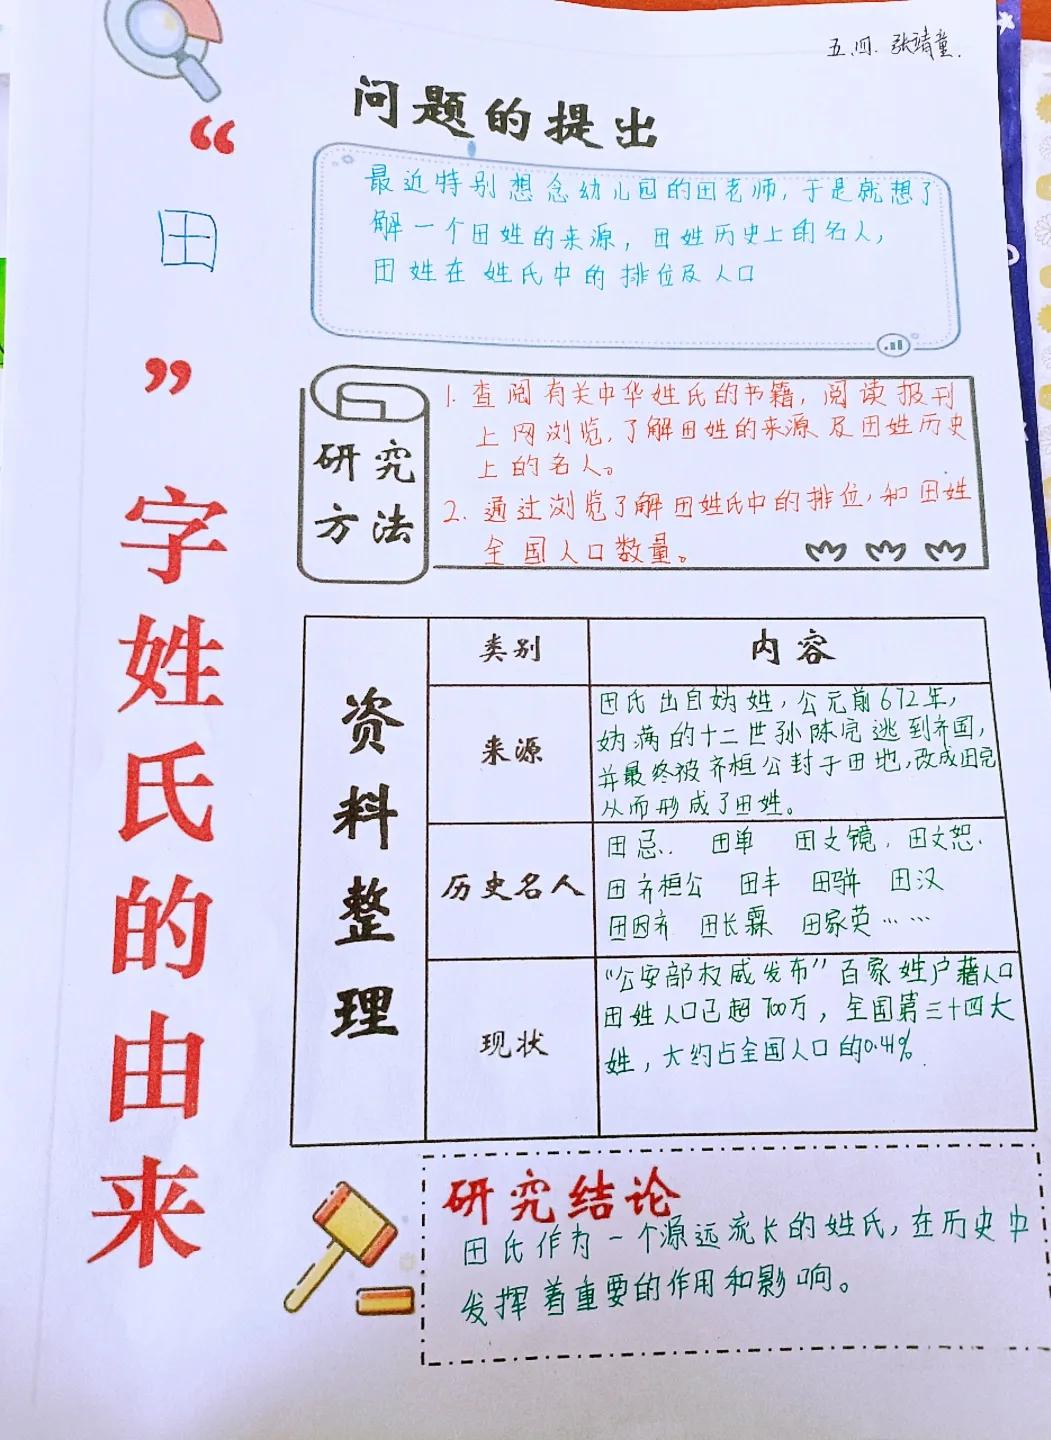 五.四. 张靖童.
“田”字姓氏的由来
问题的提出
最近特别想念幼儿园的田老师,于是就想了
解一个田姓的来源,田姓历史上的名人,
田姓在姓氏中的排位及人口
研究
方法
1. 查阅有关中华姓氏的书籍,阅读报刊
上网浏览,了解田姓的来源及田姓历史
上的名人。
2. 通过浏览了解田姓氏中的排位,和田姓
全国人口数量。
资料整理
类别
内容
来源
田氏出自妫姓,公元前672年,
妫满的十二世孙陈完逃到齐国,
并最终被齐桓公封于田地,改成田完
从而形成了田姓。
历史名人
田忌. 田单 田文镜, 田文恕.
田齐桓公 田丰 田骈 田汉
田因齐 田长霖 田家英……
现状
“公安部权威发布”百家姓户籍人口
田姓人口已超700万,全国第三十四大
姓,大约占全国人口的0.41%
研究结论
田氏作为一个源远流长的姓氏,在历史中
发挥着重要的作用和影响。